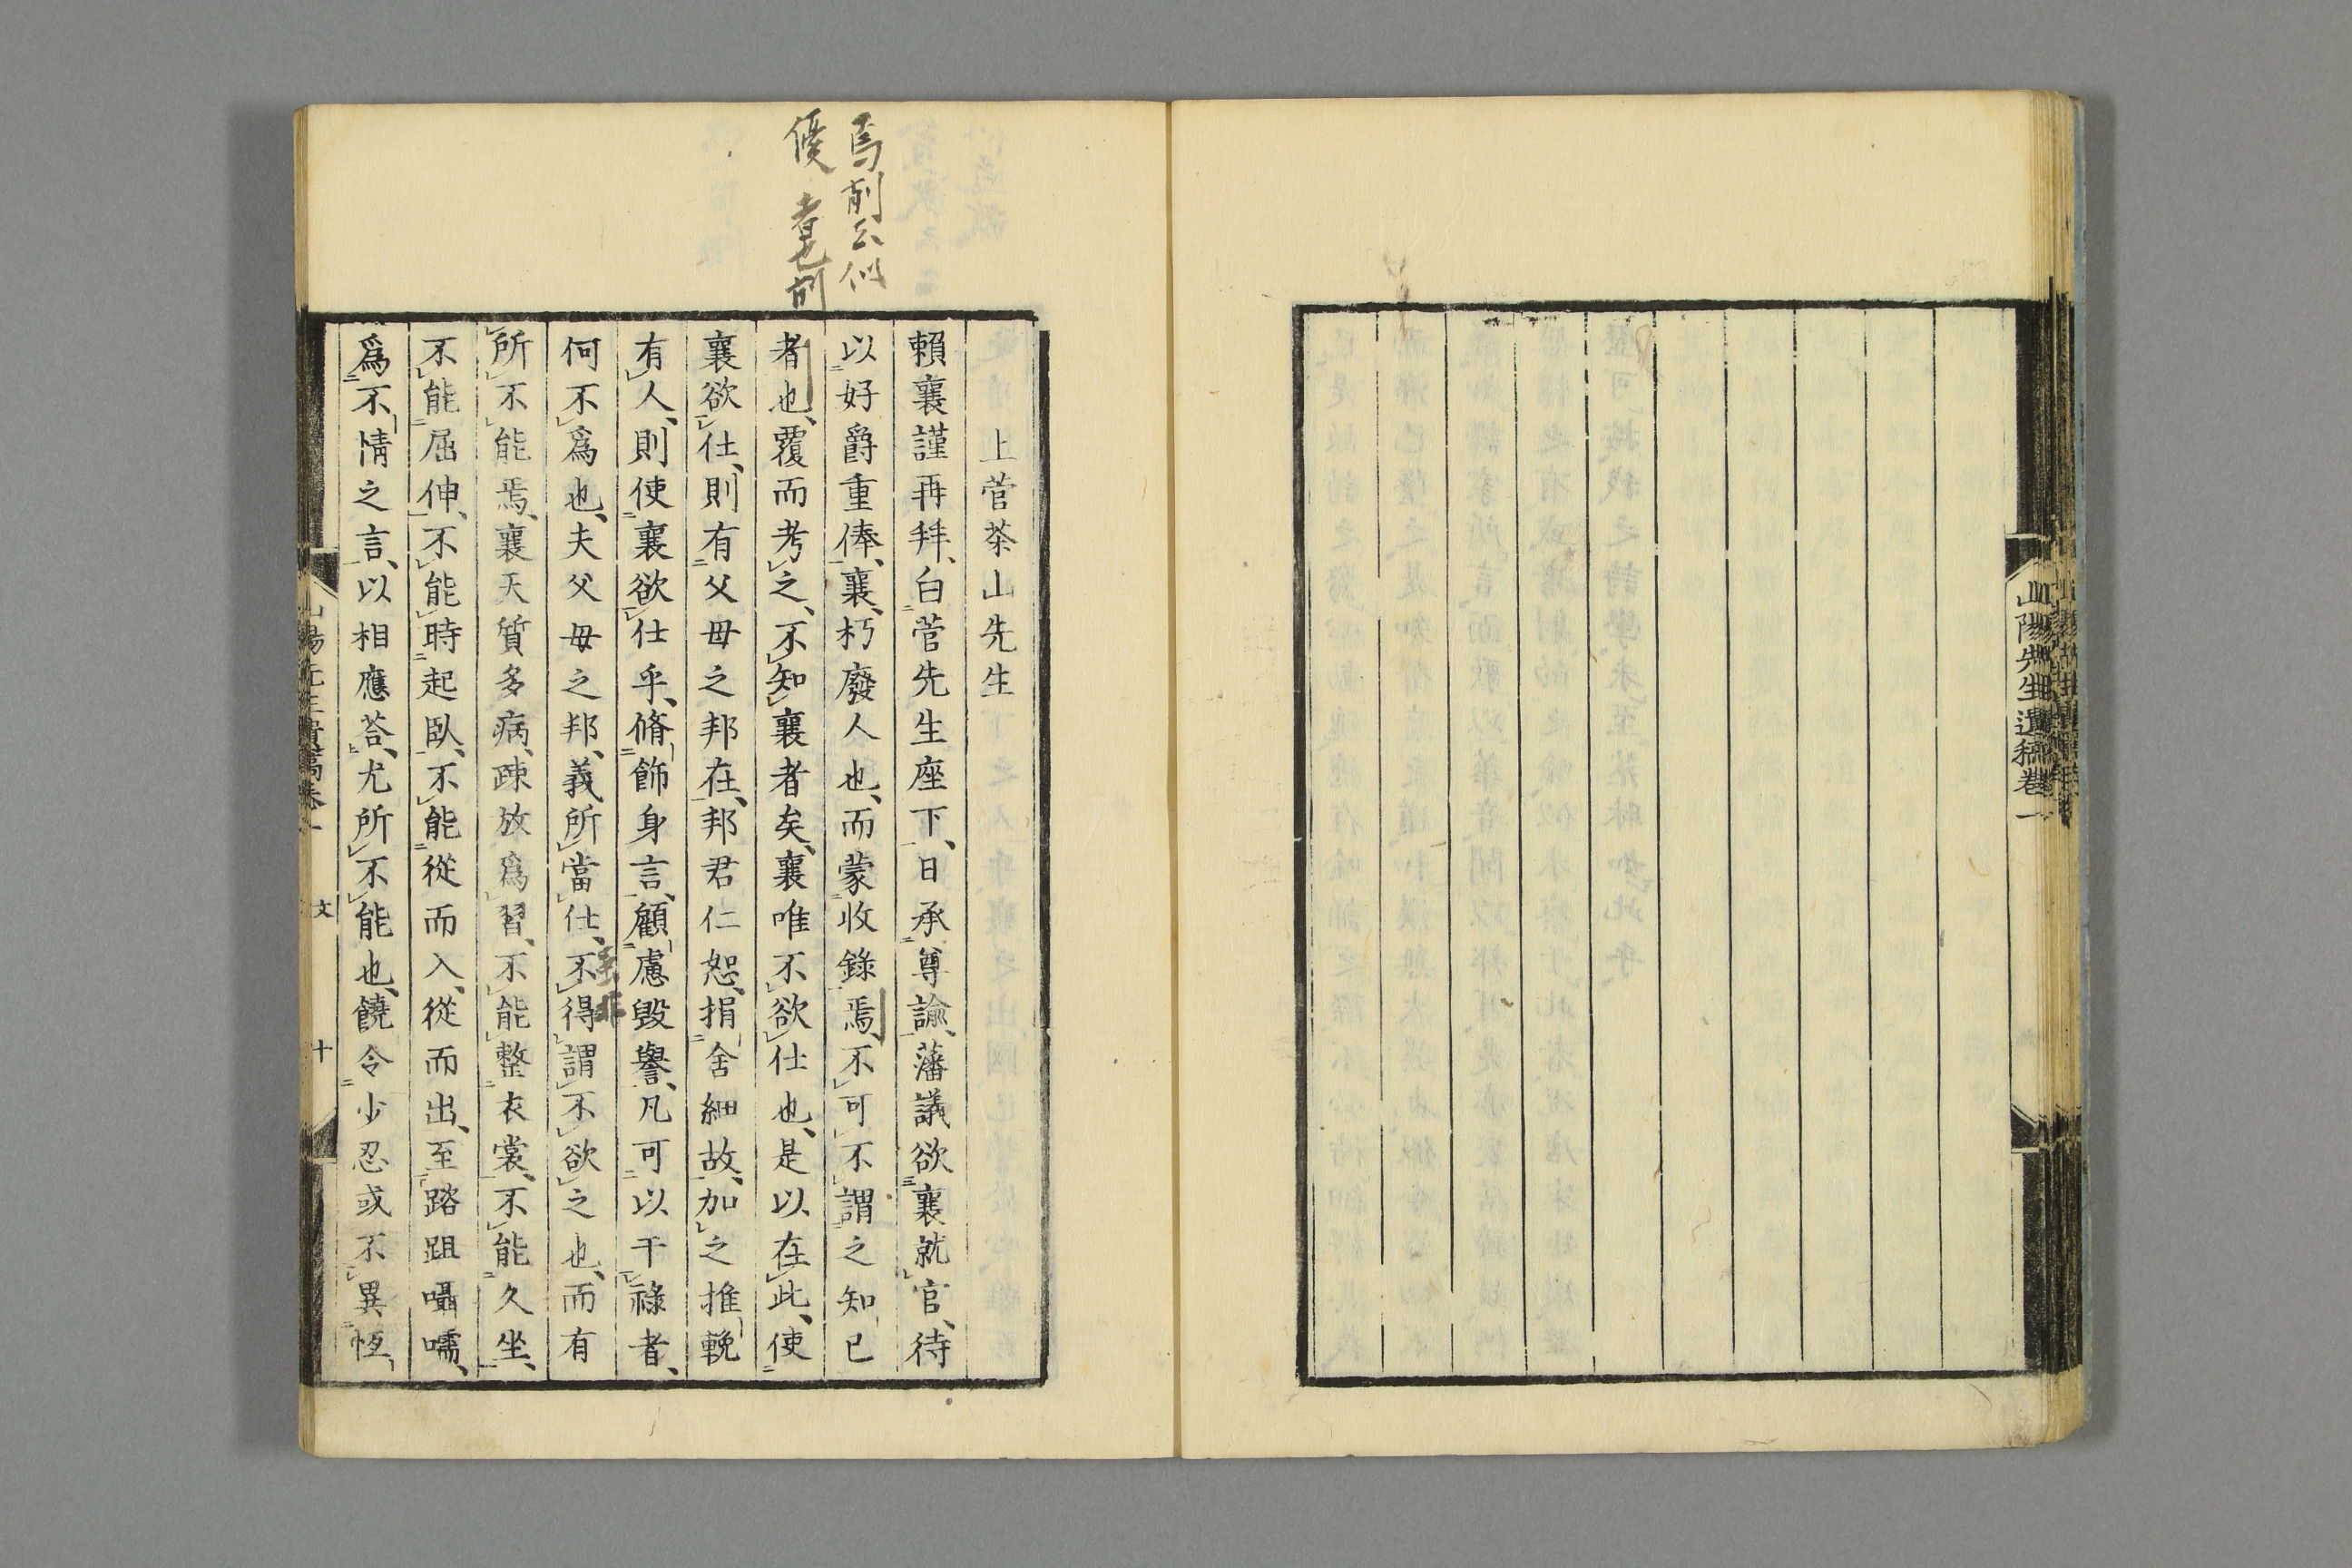 山陽先生遺稿卷一
焉削公似
優 者也削
上菅茶山先生
賴襄謹再拜、白菅先生座下、日承尊諭、藩議欲襄就官、待
以好爵重俸、襄、朽廢人也、而蒙收錄焉、不可不謂之知己
者也、覆而考之、不知襄者矣、襄唯不欲仕也、是以在此、使
襄欲仕、則有父母之邦在、邦君仁恕、捐舍細故、加之推輓
有人、則使襄欲仕乎、脩飾身言、顧慮毀譽、凡可以干祿者、
何不爲也、夫父母之邦、義所當仕、不得謂不欲之也、而有
所不能焉、襄天質多病、疎放爲習、不能整衣裳、不能久坐、
不能屈伸、不能時起臥、不能從而入、從而出、至踏跙囁嚅、
爲不情之言、以相應荅、尤所不能也、饒令少忍或不異恆、
山陽先生遺稿卷一 文 十